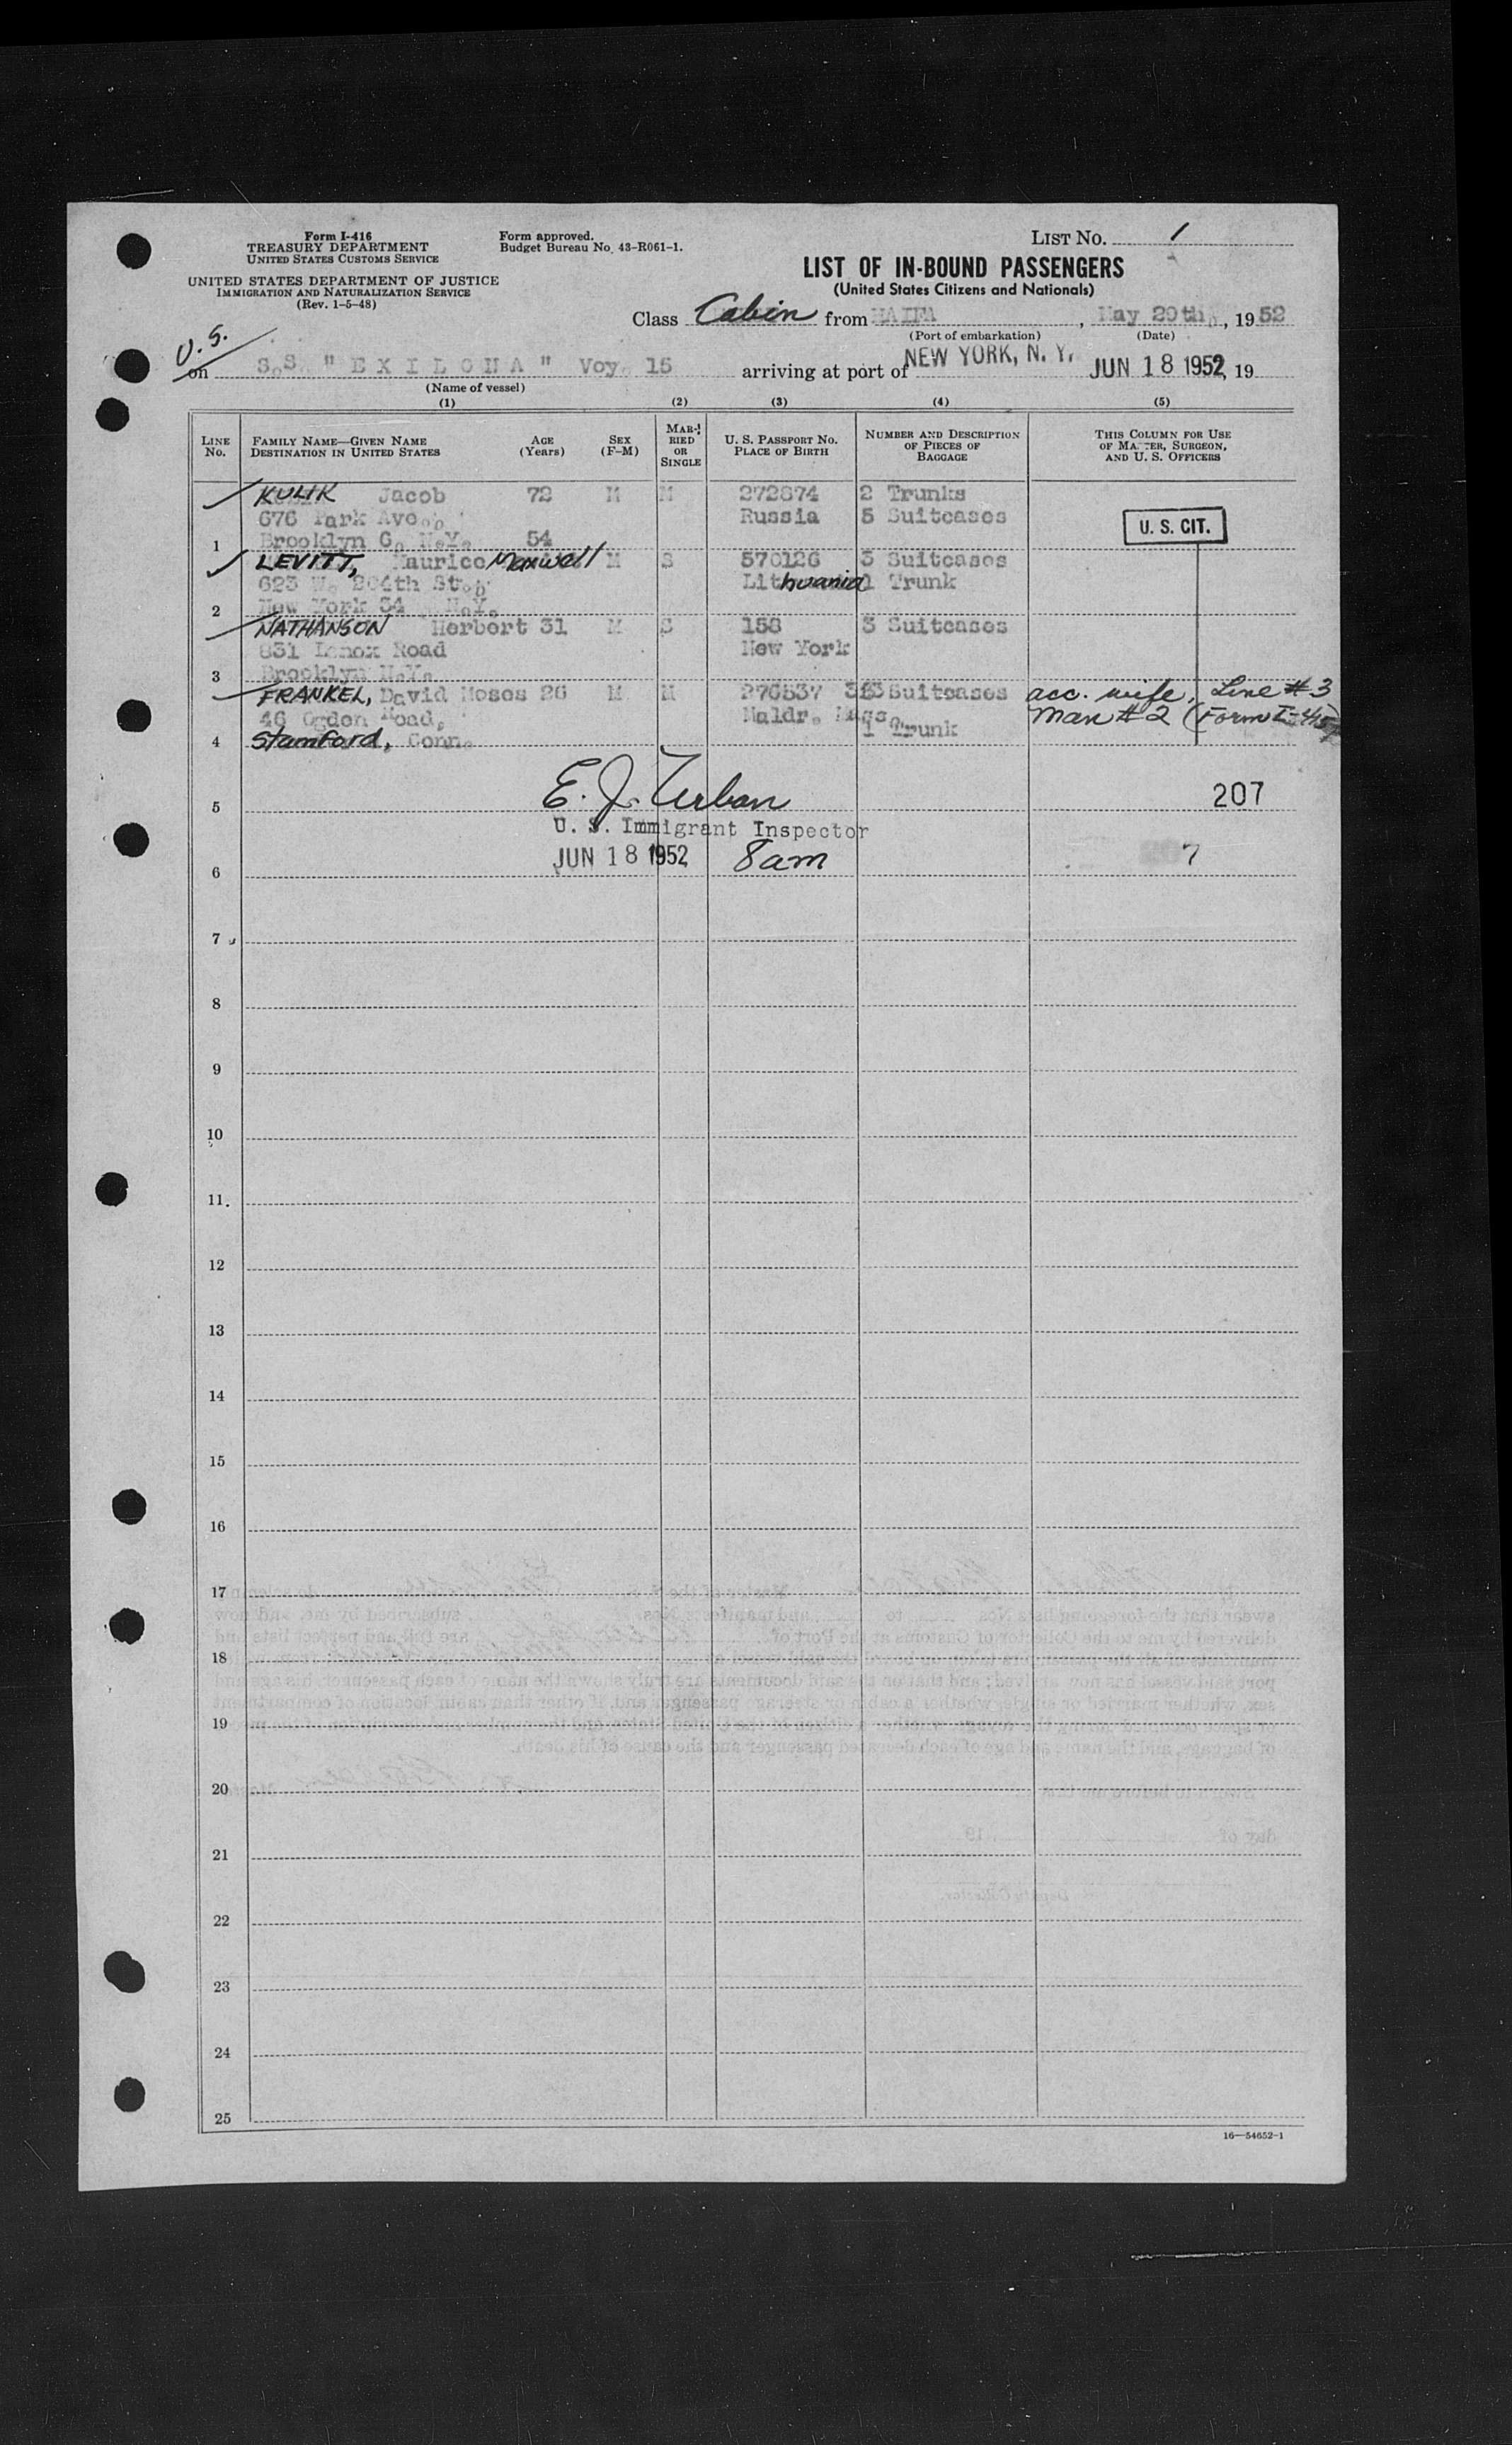 Form I-416
TREASURY DEPARTMENT
UNITED STATES CUSTOMS SERVICE
UNITED STATES DEPARTMENT OF JUSTICE
IMMIGRATION AND NATURALIZATION SERVICE
(Rev. 1-5-48)
Form approved.
Budget Bureau No. 43-R061-1.
LIST NO. 1
LIST OF IN-BOUND PASSENGERS
(United States Citizens and Nationals)
Class Cabin from HAIFA, May 29th, 1952
(Port of embarkation) (Date)
U.S.
on S.S. "EXILONA" Voy. 15 arriving at port of NEW YORK, N. Y. JUN 18 1952, 19
(Name of vessel)
(1) (2) (3) (4) (5)
LINE NO. FAMILY NAME—GIVEN NAME DESTINATION IN UNITED STATES AGE (Years) SEX (F-M) MARRIED OR SINGLE U. S. PASSPORT NO. PLACE OF BIRTH NUMBER AND DESCRIPTION OF PIECES OF BAGGAGE THIS COLUMN FOR USE OF MASTER, SURGEON, AND U. S. OFFICERS
KULIK Jacob 72 M M 272874 2 Trunks
676 Park Ave., Russia 5 Suitcases
U. S. CIT.
1 Brooklyn 6, N.Y. 54
LEVITT, Maurice Maxwell M S 570126 3 Suitcases
623 W. 204th St., Lithuania 1 Trunk
2 New York 34 N.Y.
NATHANSON Herbert 31 M S 158 3 Suitcases
831 Lenox Road New York
3 Brooklyn N.Y.
FRANKEL, David Moses 26 M M 276537 Suitcases acc. wife, Line #3
46 Ogden Road, Maldr. Mass. Man #2 (Form I-415)
4 Stamford, Conn. 1 Trunk
E. J. Urban
5 207
U. S. Immigrant Inspector
JUN 18 1952 8 am 7
6
7
8
9
10
11
12
13
14
15
16
17
18
19
20
21
22
23
24
25
16—54652-1